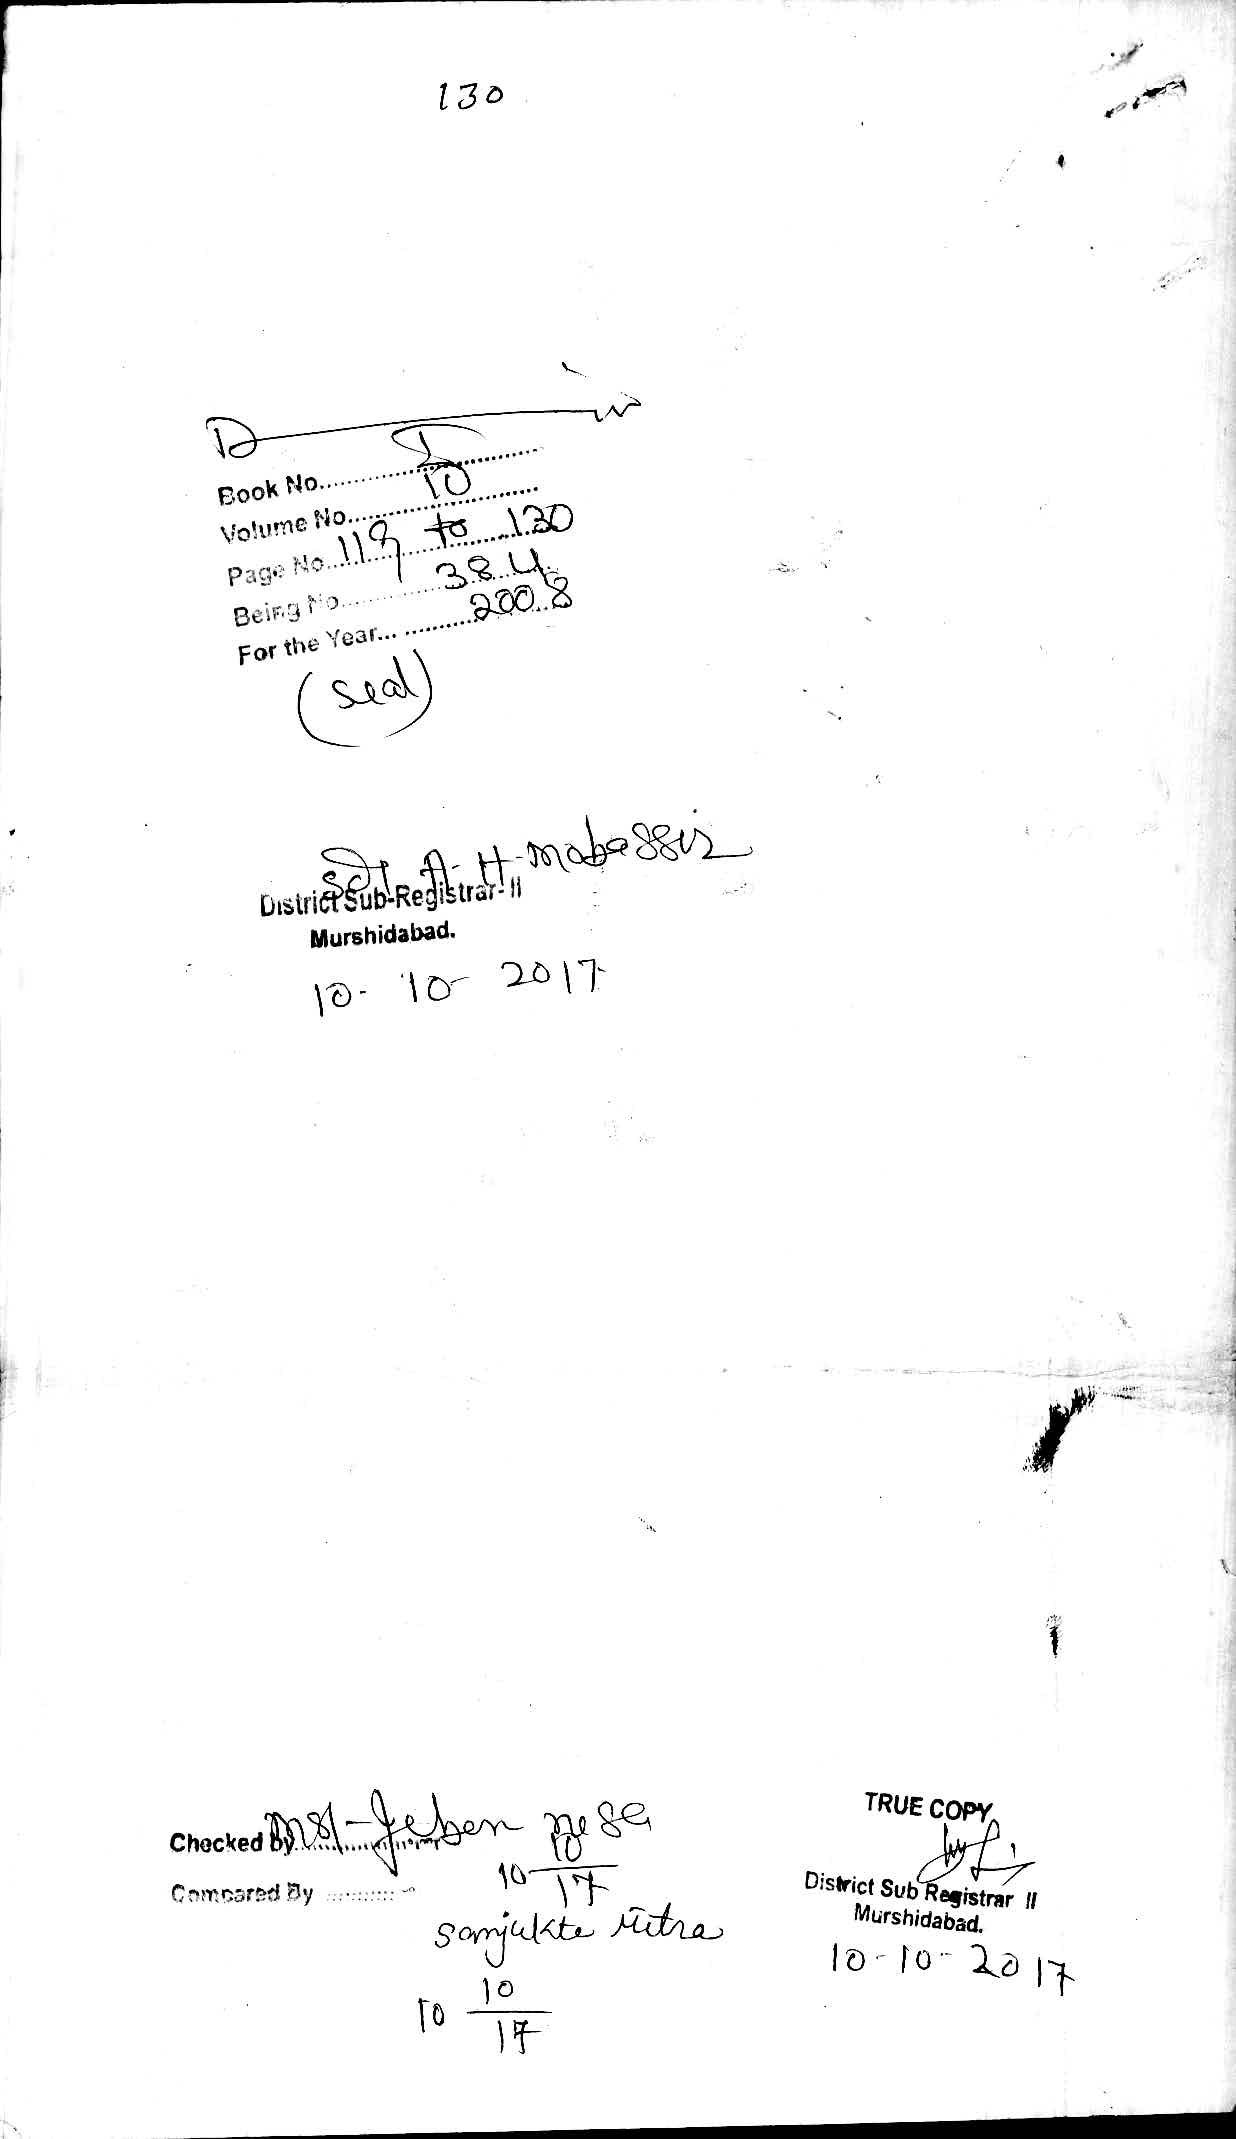 130
Book No. I
Volume No. 10
Page No. 119 to 130
Being No. 384
For the Year 2008
(Seal)
Sd/ A-H-Mobassir
District Sub-Registrar-II
Murshidabad.
10-10-2017
Checked By Mst-Jeben nesa
10 10/17
Compared By
Sanjukta Mitra
10 10/17
TRUE COPY
District Sub Registrar II
Murshidabad.
10-10-2017